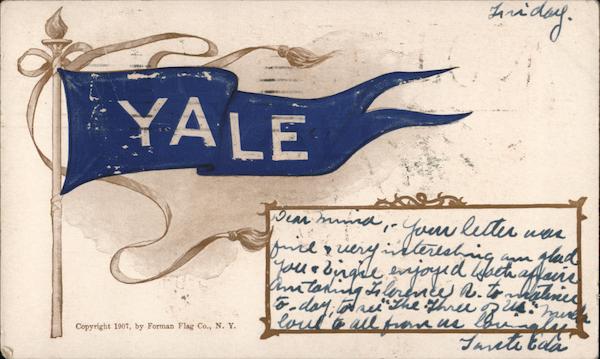 Friday.
YALE
Dear Mina, :- Your letter was
fine & very interesting am glad
you & Virgie enjoyed both affairs
Am taking Florence R. to matinee
to-day, to see "The Three of Us." Much
love to all from us lovingly
Copyright 1907, by Forman Flag Co., N. Y.
Eda